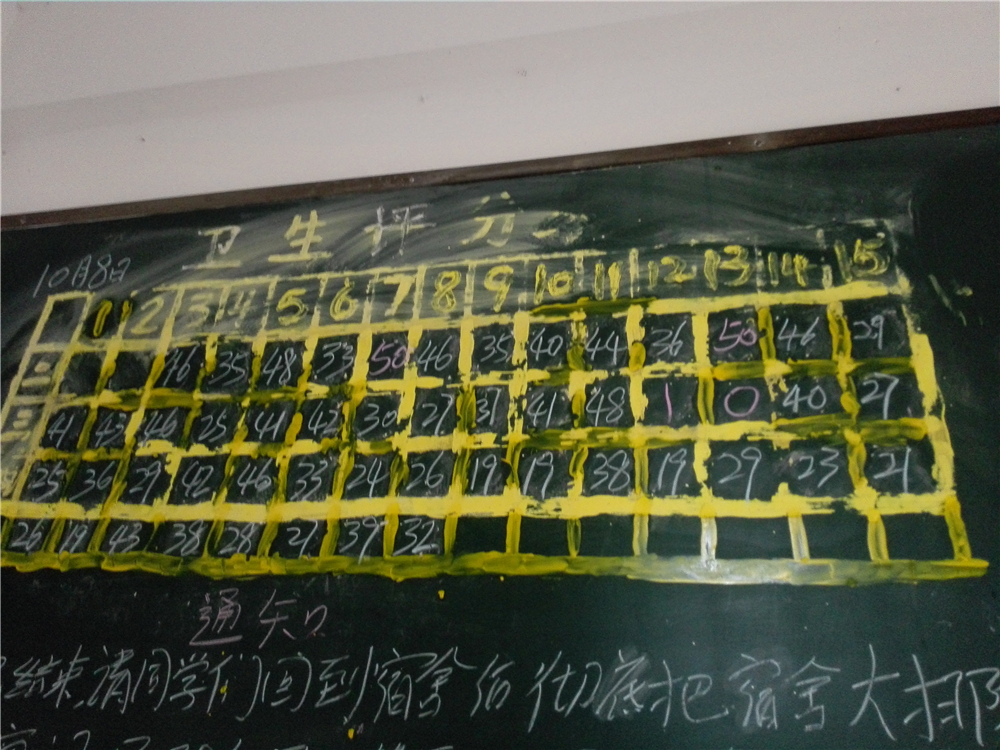 卫生评分
10月8日
1 2 3 4 5 6 7 8 9 10 11 12 13 14 15
二 46 35 48 33 50 46 35 40 44 36 50 46 29
三 41 43 46 25 41 42 30 27 31 41 48 1 0 40 27
25 36 29 42 46 33 24 26 19 19 38 19 29 23 21
26 19 43 38 28 27 39 32
通知
结束请同学们回到宿舍后彻底把宿舍大扫